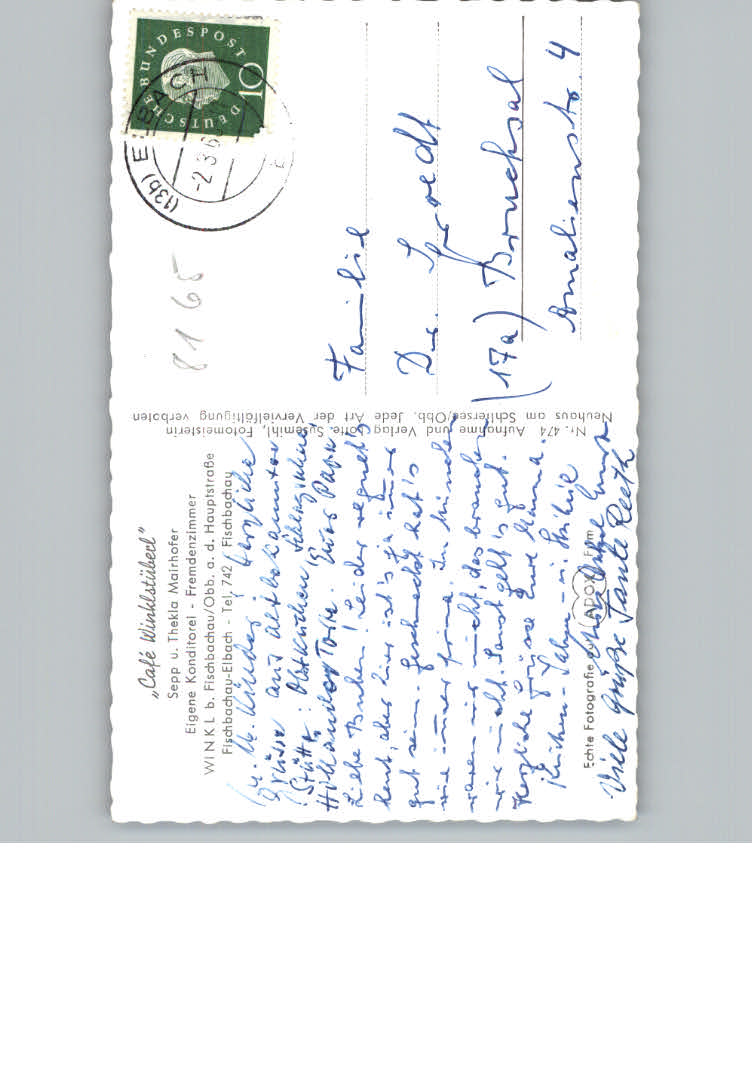 „Café Winklstüberl"
Sepp u. Thekla Mairhofer
Eigene Konditorei - Fremdenzimmer
WINKL b. Fischbachau/Obb. a. d. Hauptstraße
Fischbachau-Elbach - Tel. 742 Fischbachau
M. Kinder! Herzliche
Grüsse aus altbekannter
Stätte: Obstkuchen, Schlagsahne,
Holländer Torte. Euer Papa
Liebe Buben! Leider regnet's
heut, aber hier ist's ja immer
gut sein. Geschmeckt hat's
wie immer prima. In München
waren wir nicht, das brauchen
wir nicht. Sonst geht's gut.
Herzliche Grüsse Eure Mama.
Kuchen-Sahne-
Viele Grüße Tante Reeth
Echte Fotografie
ADOX
Nr. 474 Aufnahme und Verlag Lotte Susemihl, Fotomeisterin
Neuhaus am Schliersee/Obb. Jede Art der Vervielfältigung verboten
DEUTSCHE BUNDESPOST
10
(13b) ELBACH
-2.3.6
8165
Familie
Dr.
(17a) Bruchsal
Amalienstr. 4